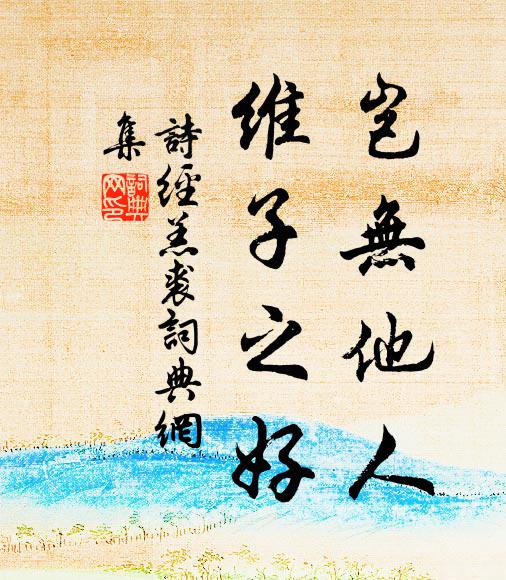 豈無他人
維子之好
詩經羔裘詞典網
集
詞典
网印